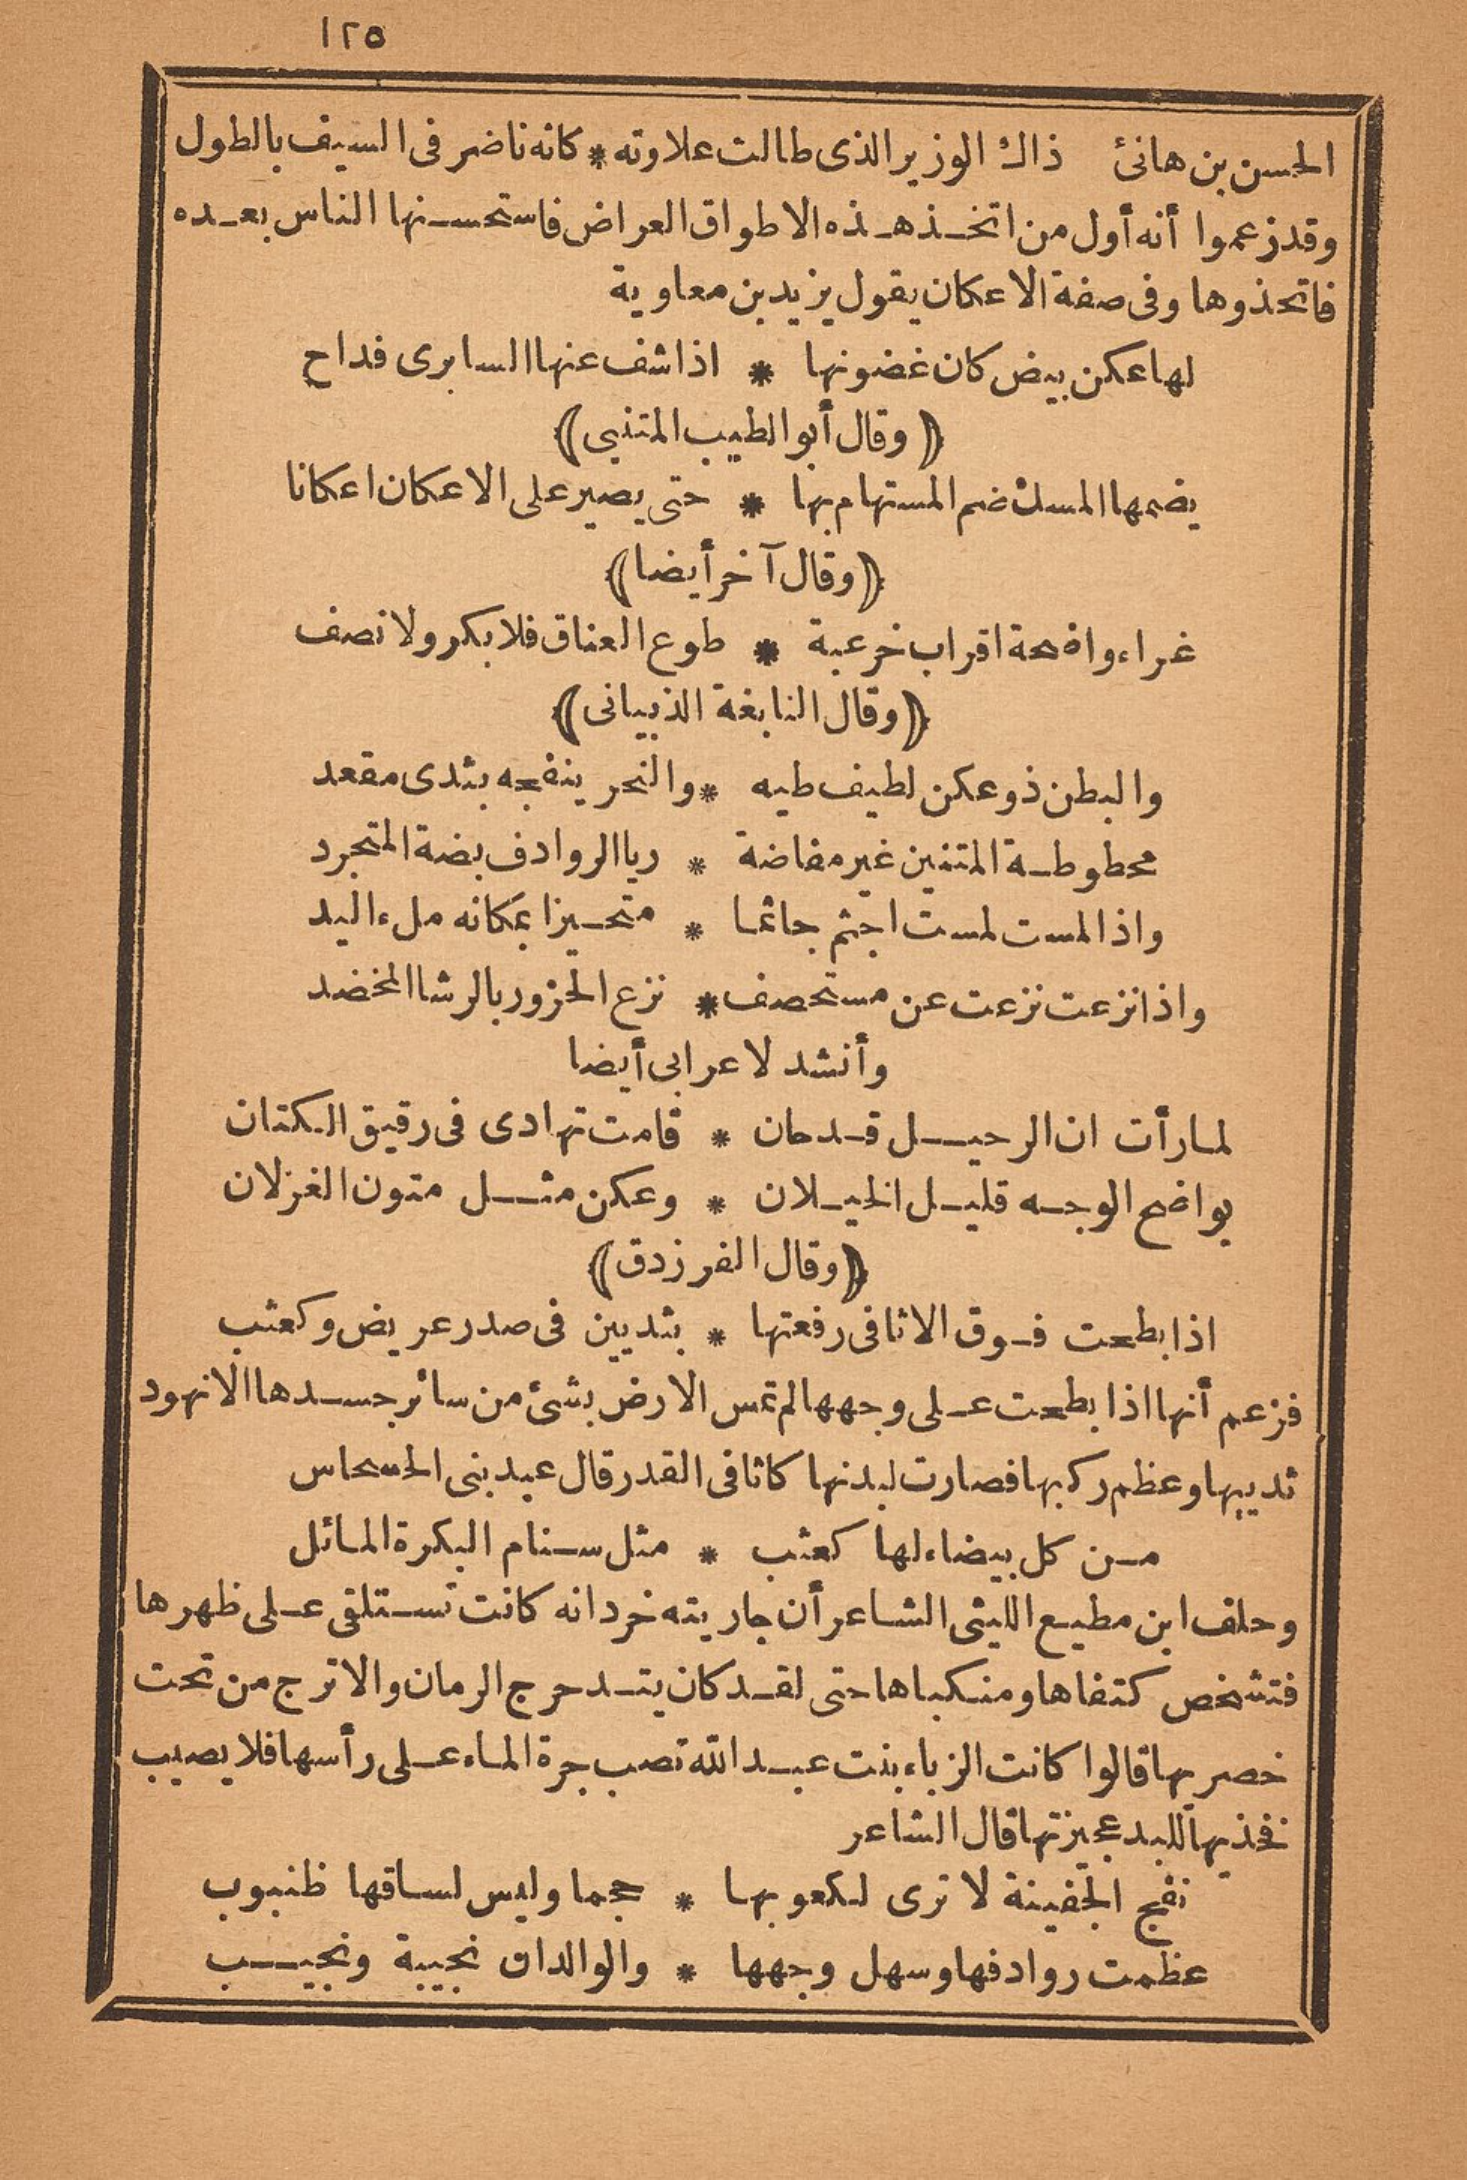 ١٢٥
الحسن بن هانئ ذاك الوزير الذى طالت علاوته * كانه ناضر فى السيف بالطول
وقد زعموا أنه أول من اتخذ هذه الاطواق العراض فاستحسنها الناس بعده
فاتخذوها وفى صفة الاعكان يقول يزيد بن معاوية
لها عكن بيض كان غضونها * اذا شف عنها السابرى قداح
﴿وقال أبو الطيب المتنبى﴾
يضمها المسك ضم المستهام بها * حتى يصير على الاعكان اعكانا
﴿وقال آخر أيضا﴾
غراء واضحة اقراب خرعبة * طوع العناق فلا بكر ولا نصف
﴿وقال النابغة الذبيانى﴾
والبطن ذو عكن لطيف طيه * والنحر ينفجه بثدى مقعد
محطوطة المتنين غير مفاضة * ريا الروادف بضة المتجرد
واذا لمست لمست اجثم جاثما * متحيزا بمكانه ملء اليد
واذا نزعت نزعت عن مستحصف * نزع الحزور بالرشا المخضد
وأنشد لاعرابى أيضا
لما رأت ان الرحيل قد حان * قامت تهادى فى رقيق الكتان
بواضح الوجه قليل الخيلان * وعكن مثل متون الغزلان
﴿وقال الفرزدق﴾
اذا بطحت فوق الاثافى رفعتها * بثديين فى صدر عريض وكعثب
فزعم أنها اذا بطحت على وجهها لم تمس الارض بشئ من سائر جسدها الا نهود
ثدييها وعظم ركبها فصارت لبدنها كاثافى القدر قال عبد بنى الحسحاس
من كل بيضاء لها كعثب * مثل سنام البكرة المائل
وحلف ابن مطيع الليثى الشاعر أن جاريته خردانه كانت تستلقى على ظهرها
فتشخص كتفاها ومنكباها حتى لقد كان يتدحرج الرمان والاترج من تحت
خصريها قالوا كانت الزباء بنت عبد الله تصب جرة الماء على رأسها فلا يصيب
فخذيها للبد عجيزتها قال الشاعر
نفج الحقيبة لا ترى لكعوبها * حجما وليس لساقها ظنبوب
عظمت روادفها وسهل وجهها * والوالدان نجيبة ونجيب